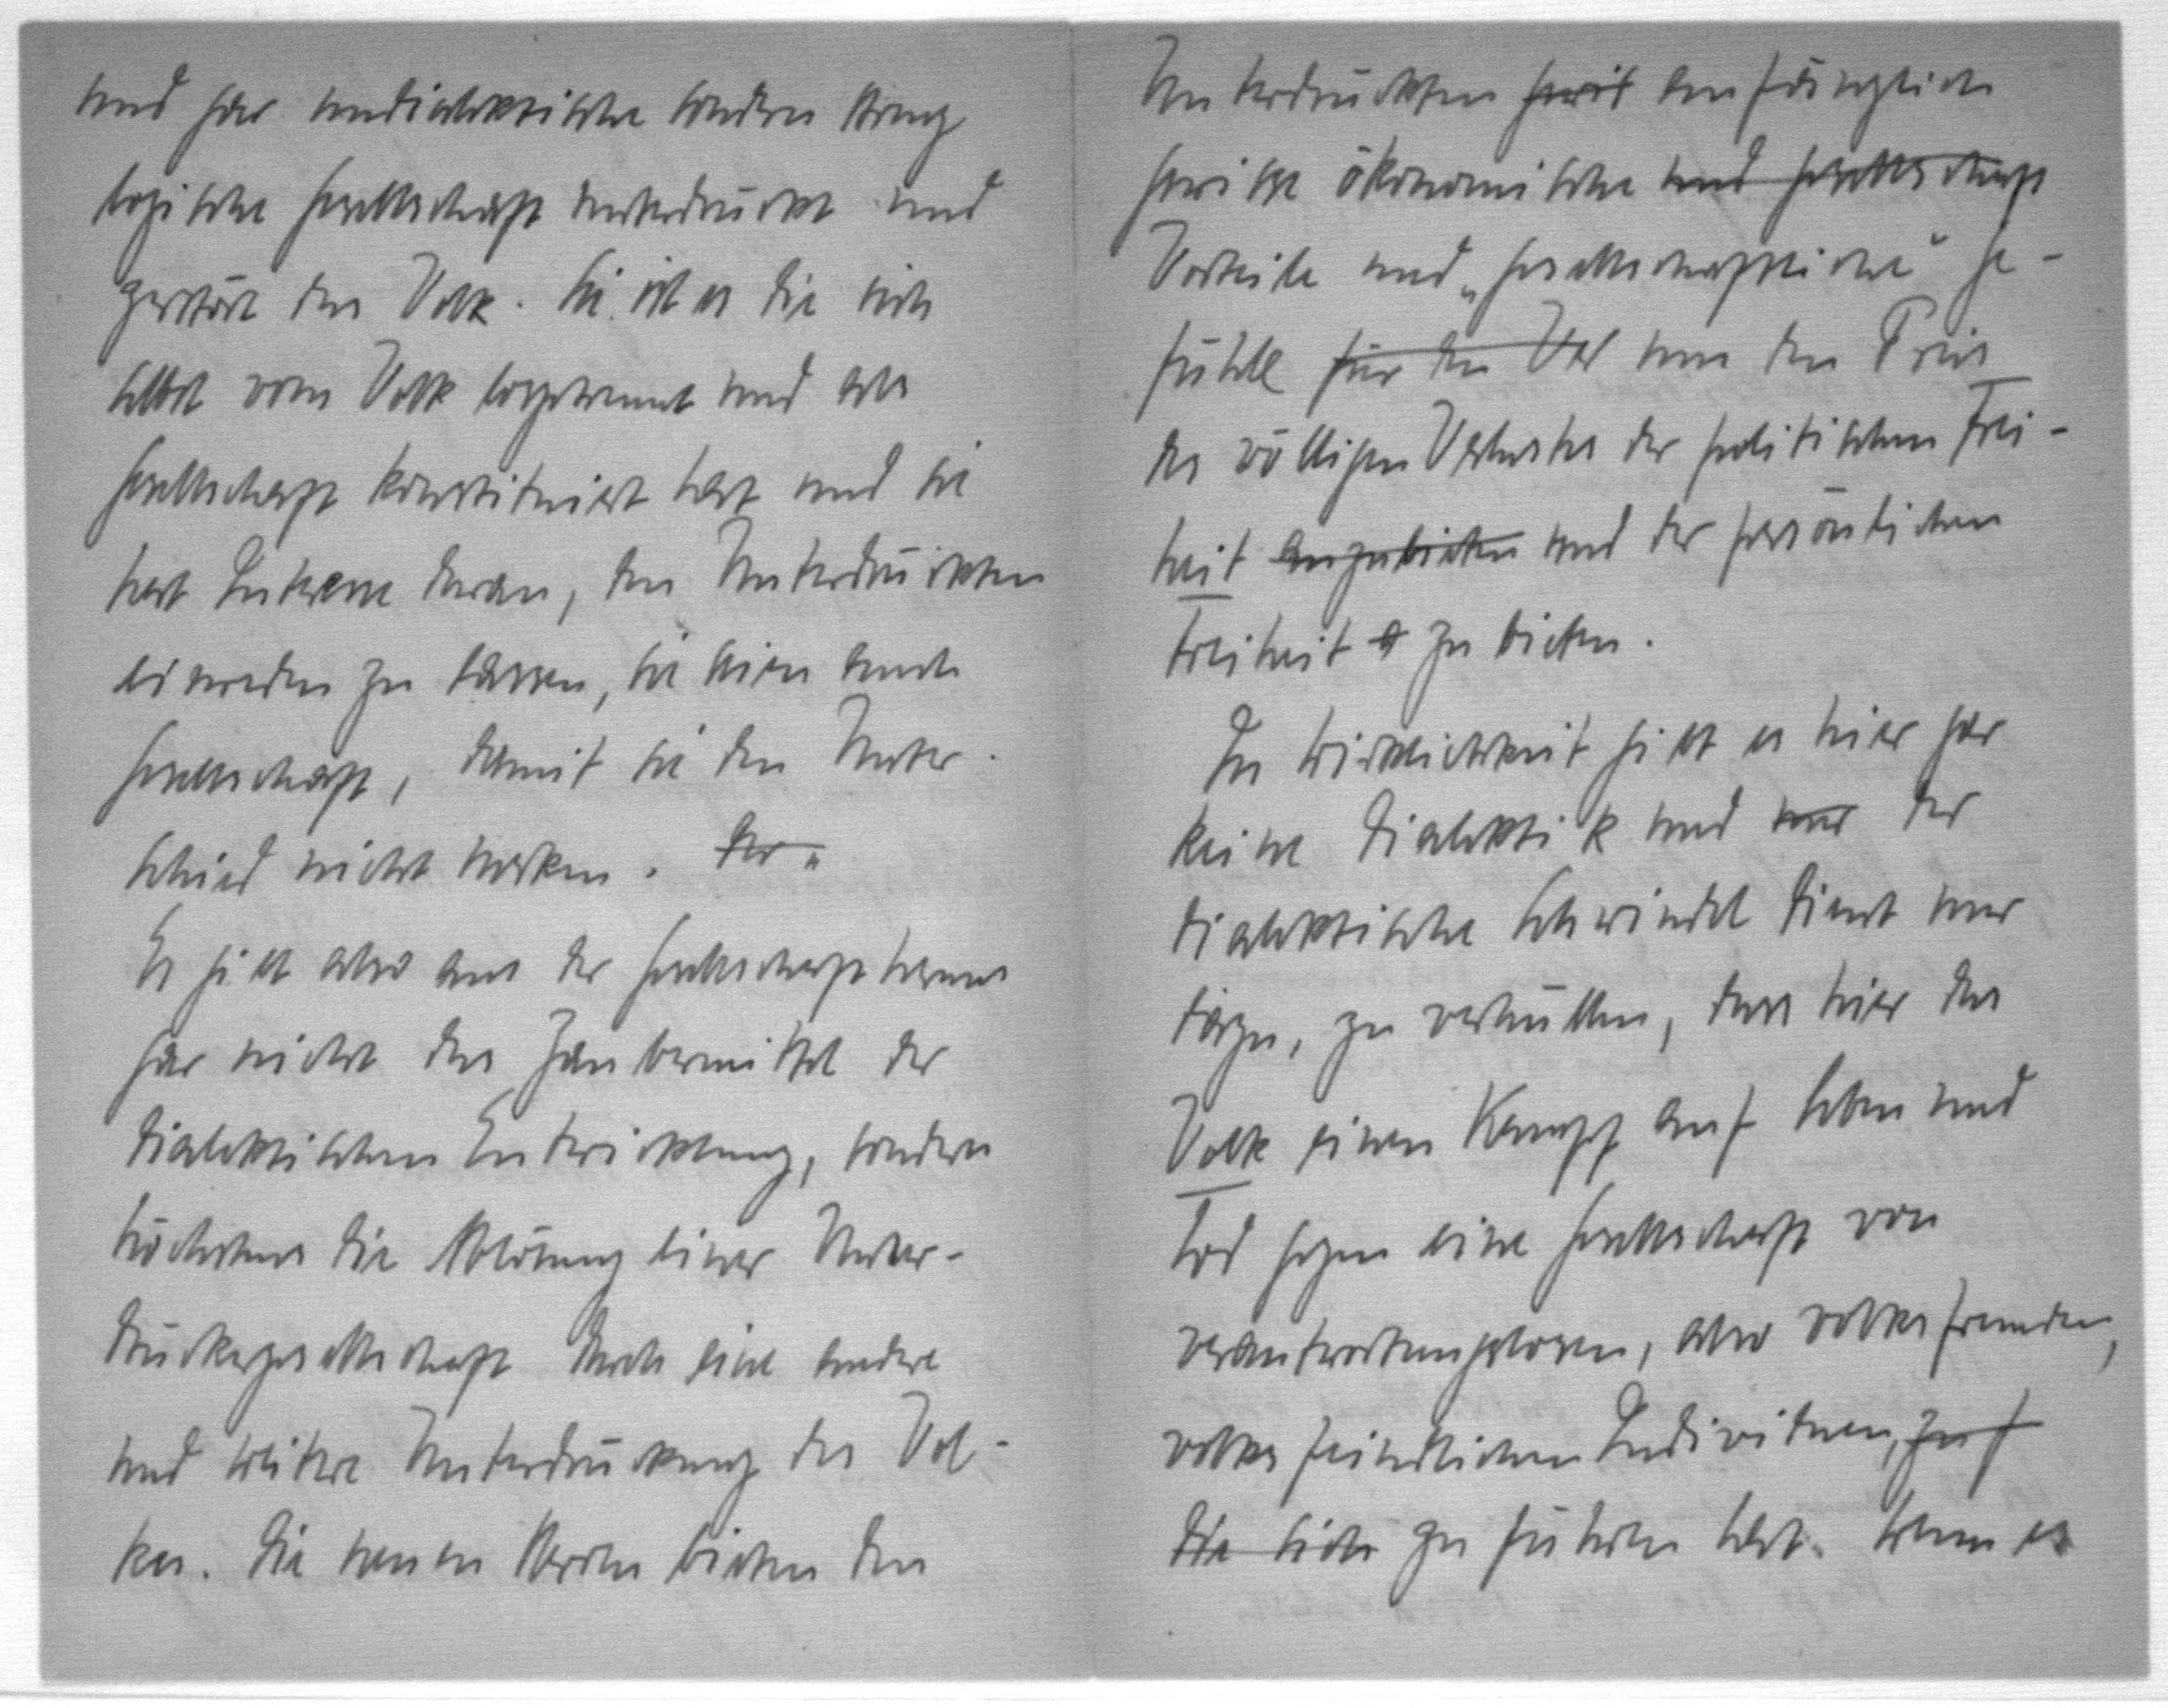 und gar undialektische sondern streng
logische Gesellschaft unterdrückt und
zerstört das Volk. Sie ist es die sich
selbst vom Volk losgetrennt und als
Gesellschaft konstituiert hat und sie
hat Interesse daran, den Unterdrückten
einreden zu lassen, sie seien auch
Gesellschaft, damit sie den Unter-
schied nicht merken. Der „
Es gibt also aus der Gesellschaft heraus
gar nicht das Zaubermittel der
dialektischen Entwicklung, sondern
höchstens die Ablösung einer Unter-
drückergesellschaft durch eine andere
und weitere Unterdrückung des Vol-
kes. Die neuen Herren bieten den
Unterdrückten gewiß anfänglich
gewisse ökonomische und gesellschaft
Vorteile und „gesellschaftliche" Ge-
fühle für den Ver um den Preis
des völligen Verlustes der politischen Frei-
heit anzubieten und der persönlichen
Freiheit zu bieten.
In Wirklichkeit gibt es hier gar
keine Dialektik und nur der
dialektische Schwindel dient nur
dazu, zu verhüllen, dass hier das
Volk einen Kampf auf Leben und
Tod gegen eine Gesellschaft von
verantwortungslosen, also volksfremden,
volksfeindlichen Individuen, zu f
die sich zu führen hat. Wenn es